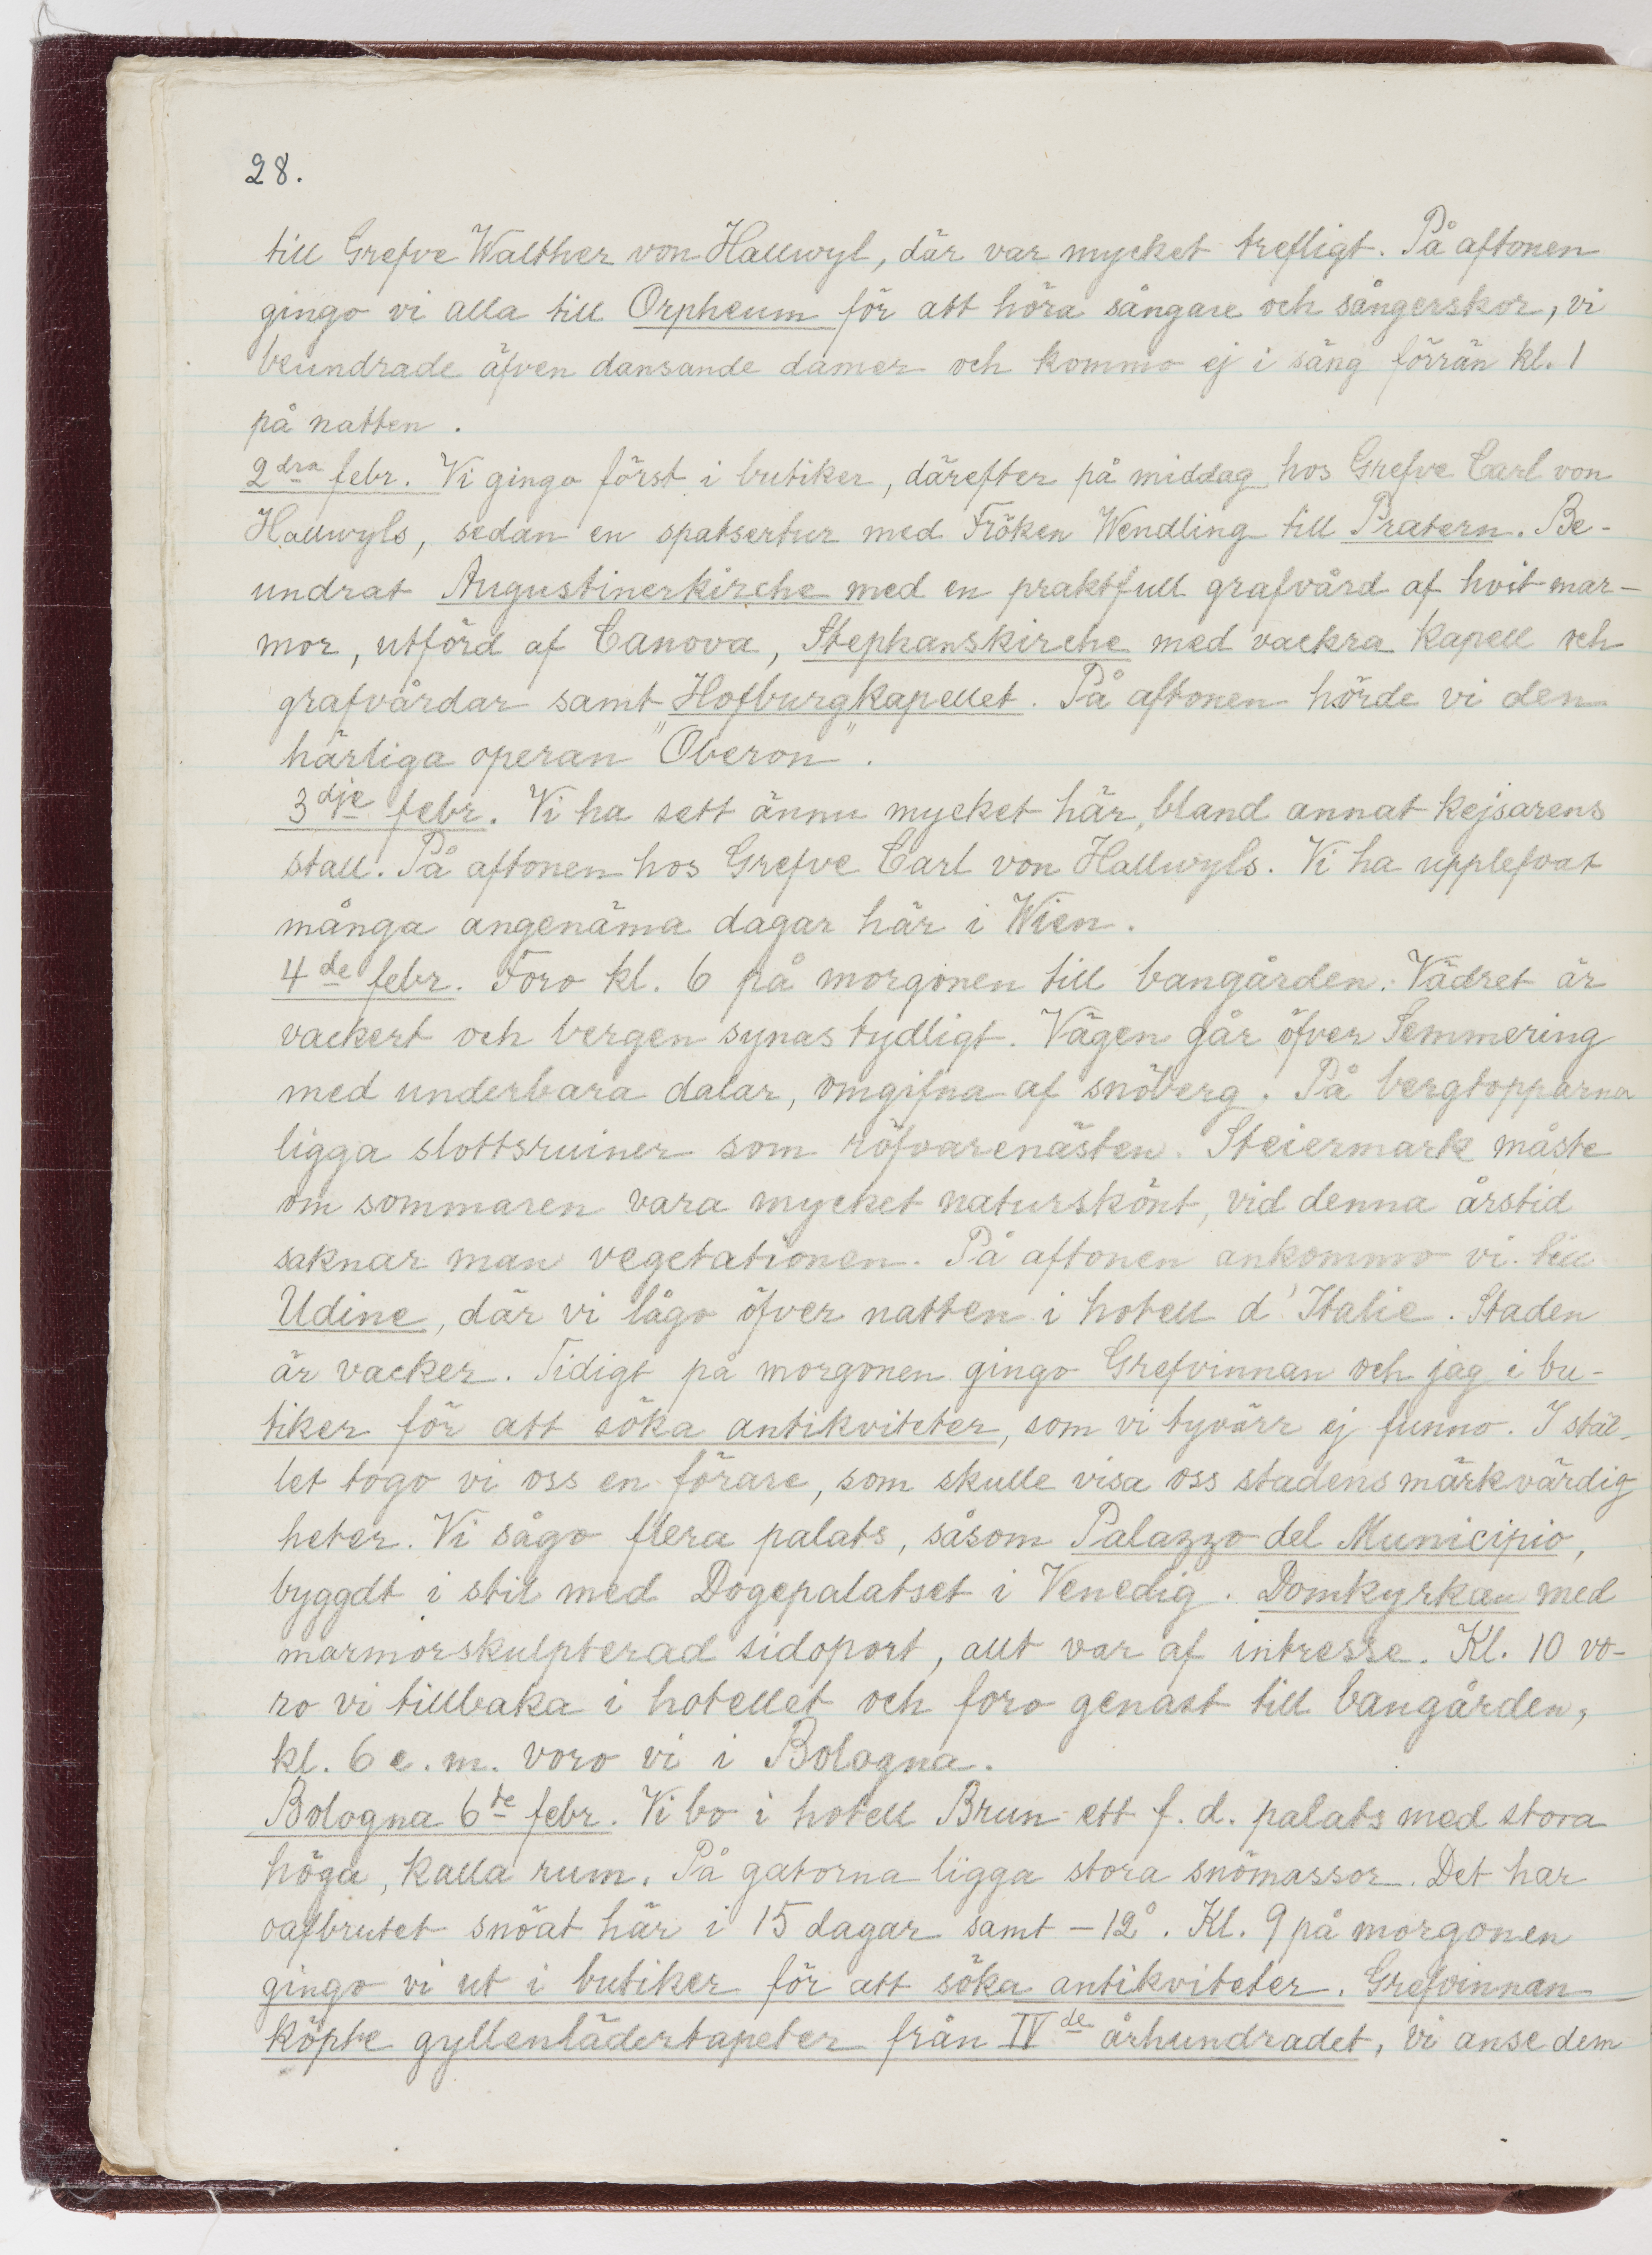 28.
till Grefve Walther von Hallwyl, där var mycket trefligt. På aftonen
gingo vi alla till Orpheum för att höra sångare och sångerskor, vi
beundrade äfven dansande damer och kommo ej i säng förrän kl. 1
på natten.
2dra febr. Vi gingo först i butiker, därefter på middag hos Grefve Carl von
Hallwyls, sedan en spatsertur med Fröken Wendling till Pratern. Be-
undrat Augustinerkirche med en praktfull grafvård af hvit mar-
mor, utförd af Canova, Stephanskirche med vackra kapell och
grafvårdar samt Hofburgkapellet. På aftonen hörde vi den
härliga operan "Oberon".
3dje febr. Vi ha sett ännu mycket här, bland annat kejsarens
stall. På aftonen hos Grefve Carl von Hallwyls. Vi ha upplefvat
många angenäma dagar här i Wien.
4de febr. Foro kl. 6 på morgonen till bangården. Vädret är
vackert och bergen synas tydligt. Vägen går öfver Semmering
med underbara dalar, omgifna af snöberg. På bergtopparna
ligga slottsruiner som röfvarenästen. Steiermark måste
om sommaren vara mycket naturskönt, vid denna årstid
saknar man vegetationen. På aftonen ankommo vi till
Udine, där vi lågo öfver natten i hotell d'Italie. Staden
är vacker. Tidigt på morgonen gingo Grefvinnan och jag i bu-
tiker för att söka antikviteter, som vi tyvärr ej funno. I stäl-
let togo vi oss en förare, som skulle visa oss stadens märkvärdig
heter. Vi sågo flera palats, såsom Palazzo del Municipio,
byggdt i stil med Dogepalatset i Venedig. Domkyrkan med
marmorskulpterad sidoport, allt var af intresse. Kl. 10 vo-
ro vi tillbaka i hotellet och foro genast till bangården,
kl. 6 e. m. voro vi i Bologna.
Bologna 6te febr. Vi bo i hotell Brun ett f. d. palats med stora
höga, kalla rum. På gatorna ligga stora snömassor. Det har
oafbrutet snöat här i 15 dagar samt -12°. Kl. 9 på morgonen
gingo vi ut i butiker för att söka antikviteter. Grefvinnan
köpte gyllenlädertapeter från IVde århundradet, vi anse dem